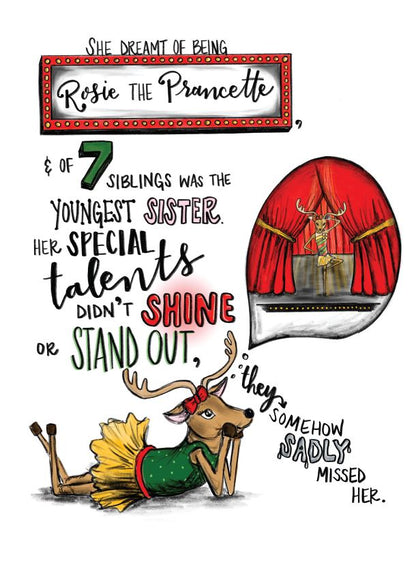 SHE DREAMT OF BEING
Rosie THE Prancette,
& OF 7
SIBLINGS WAS THE
YOUNGEST SISTER.
HER SPECIAL
talents
DIDN'T SHINE
OR STAND OUT,
they
SOMEHOW
SADLY
MISSED
HER.